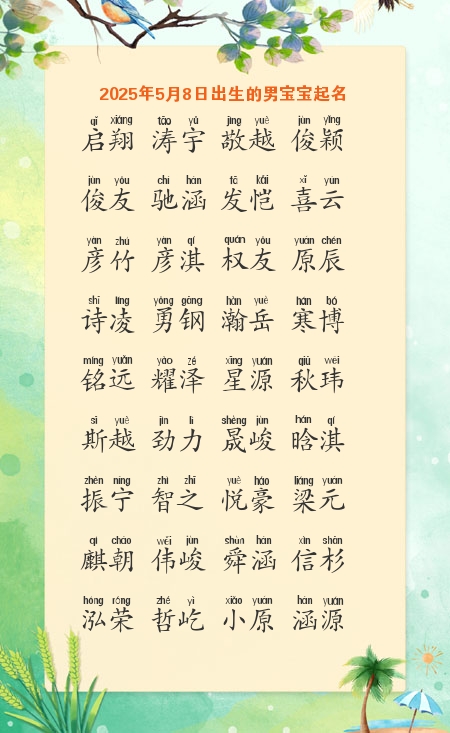 2025年5月8日出生的男宝宝起名
qǐ xiáng tāo yǔ jìng yuè jùn yǐng
启翔 涛宇 敬越 俊颖
jùn yǒu chí hán fā kǎi xǐ yún
俊友 驰涵 发恺 喜云
yàn zhú yàn qí quán yǒu yuán chén
彦竹 彦淇 权友 原辰
shī líng yǒng gāng hàn yuè hán bó
诗凌 勇钢 瀚岳 寒博
míng yuǎn yào zé xīng yuán qiū wěi
铭远 耀泽 星源 秋玮
sī yuè jìn lì shèng jùn hán qí
斯越 劲力 晟峻 晗淇
zhèn níng zhì zhī yuè háo liáng yuán
振宁 智之 悦豪 梁元
qí cháo wěi jùn shùn hán xìn shān
麒朝 伟峻 舜涵 信杉
hóng róng zhé yì xiǎo yuán hán yuán
泓荣 哲屹 小原 涵源